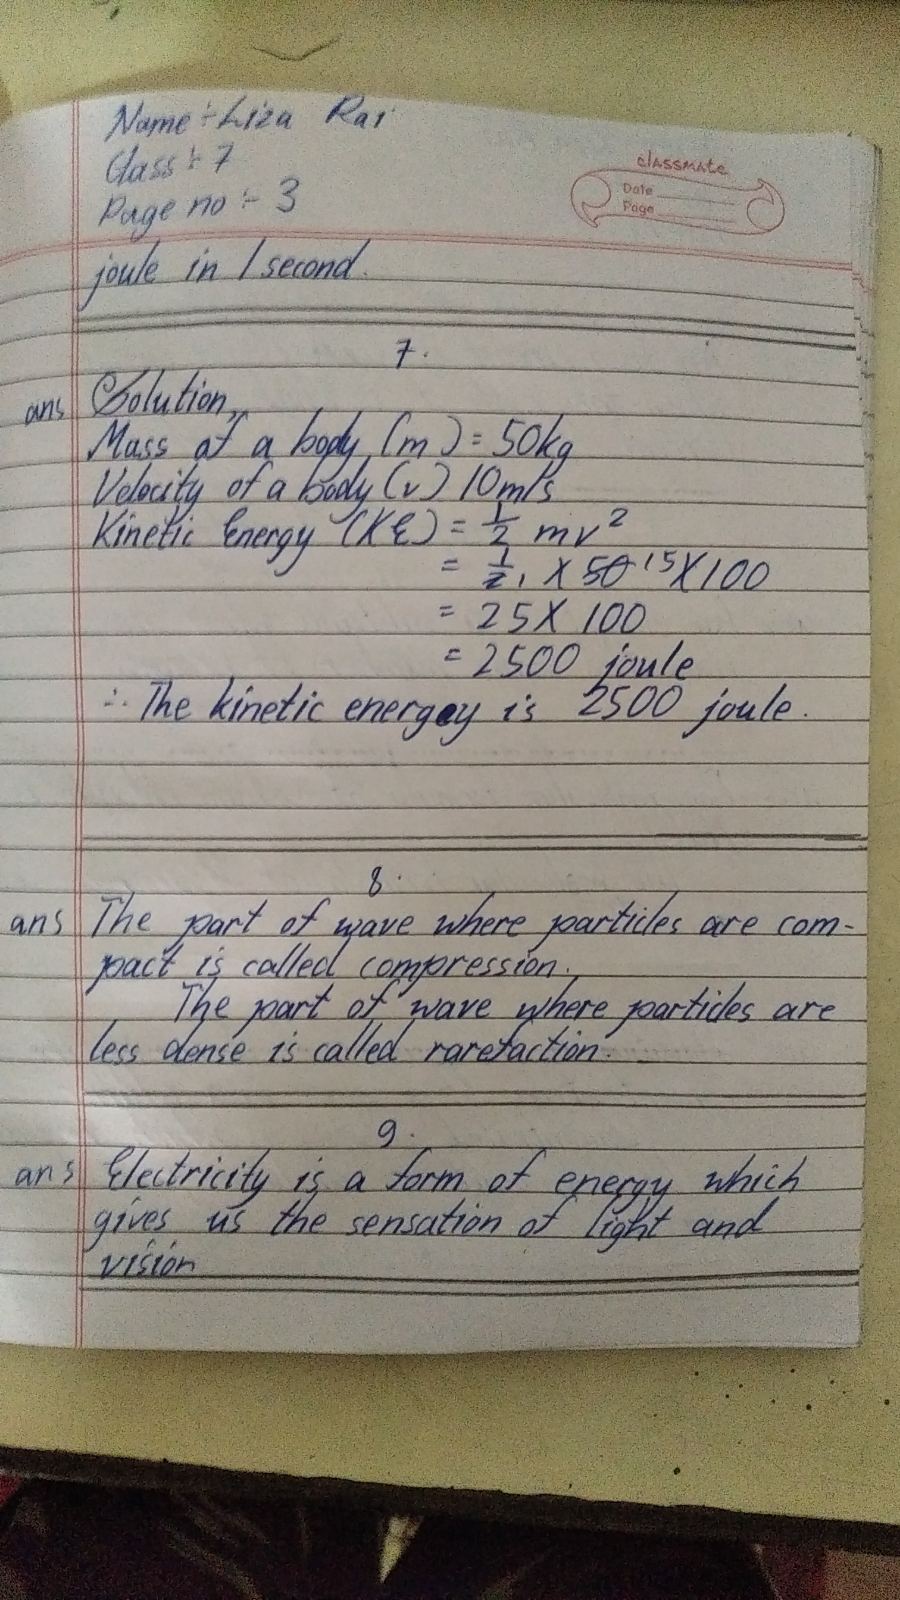 Name :- Liza Rai
Class :- 7
Page no :- 3
classmate
Date
Page
joule in 1 second.
7.
ans Solution,
Mass of a body (m) = 50kg
Velocity of a body (v) 10m/s
Kinetic Energy (KE) = 1/2 mv²
= 1/2 1 X 50 15 X 100
= 25 X 100
= 2500 joule
∴ The kinetic energy is 2500 joule.
8.
ans The part of wave where particles are com-
pact is called compression.
The part of wave where particles are
less dense is called rarefaction.
9.
ans Electricity is a form of energy which
gives us the sensation of light and
vision